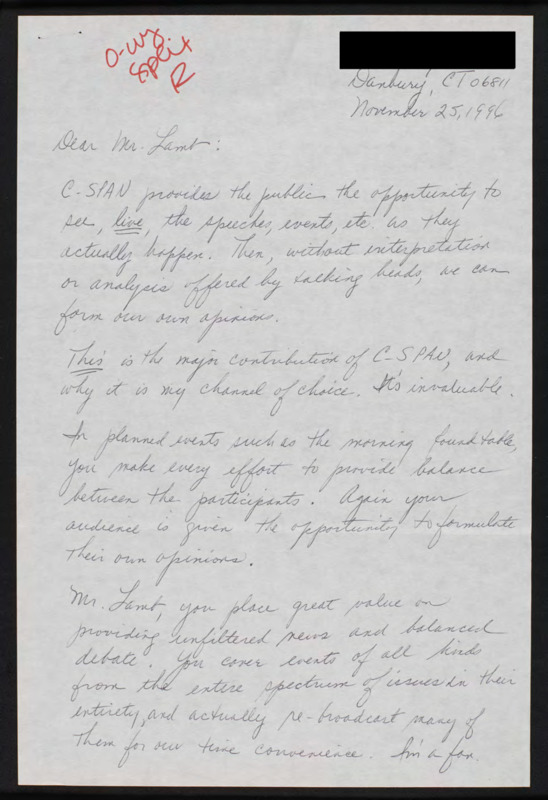 0-wy
split
R
Danbury, CT 06811
November 25, 1996
Dear Mr. Lamb:
C-SPAN provides the public the opportunity to
see, live, the speeches, events, etc. as they
actually happen. Then, without interpretation
or analysis offered by talking heads, we can
form our own opinions.
This is the major contribution of C-SPAN, and
why it is my channel of choice. It's invaluable.
In planned events such as the morning roundtable,
you make every effort to provide balance
between the participants. Again your
audience is given the opportunity to formulate
their own opinions.
Mr. Lamb, you place great value on
providing unfiltered news and balanced
debate. You cover events of all kinds
from the entire spectrum of issues in their
entirety, and actually re-broadcast many of
them for our time convenience. I'm a fan.